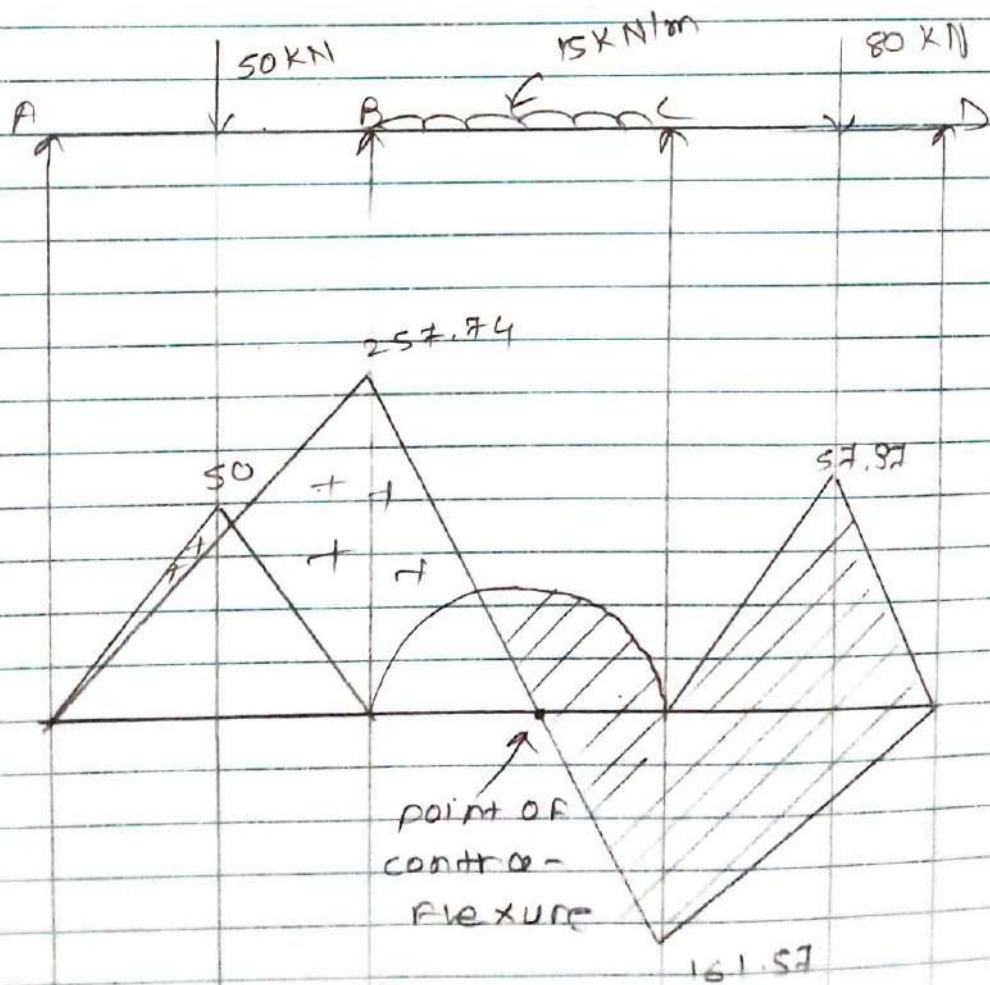 50 KN
15 KN/m
80 KN
A
B
C
D
257.74
50
57.97
+ +
+ +
+
+
point of
contra-
Flexure
161.57